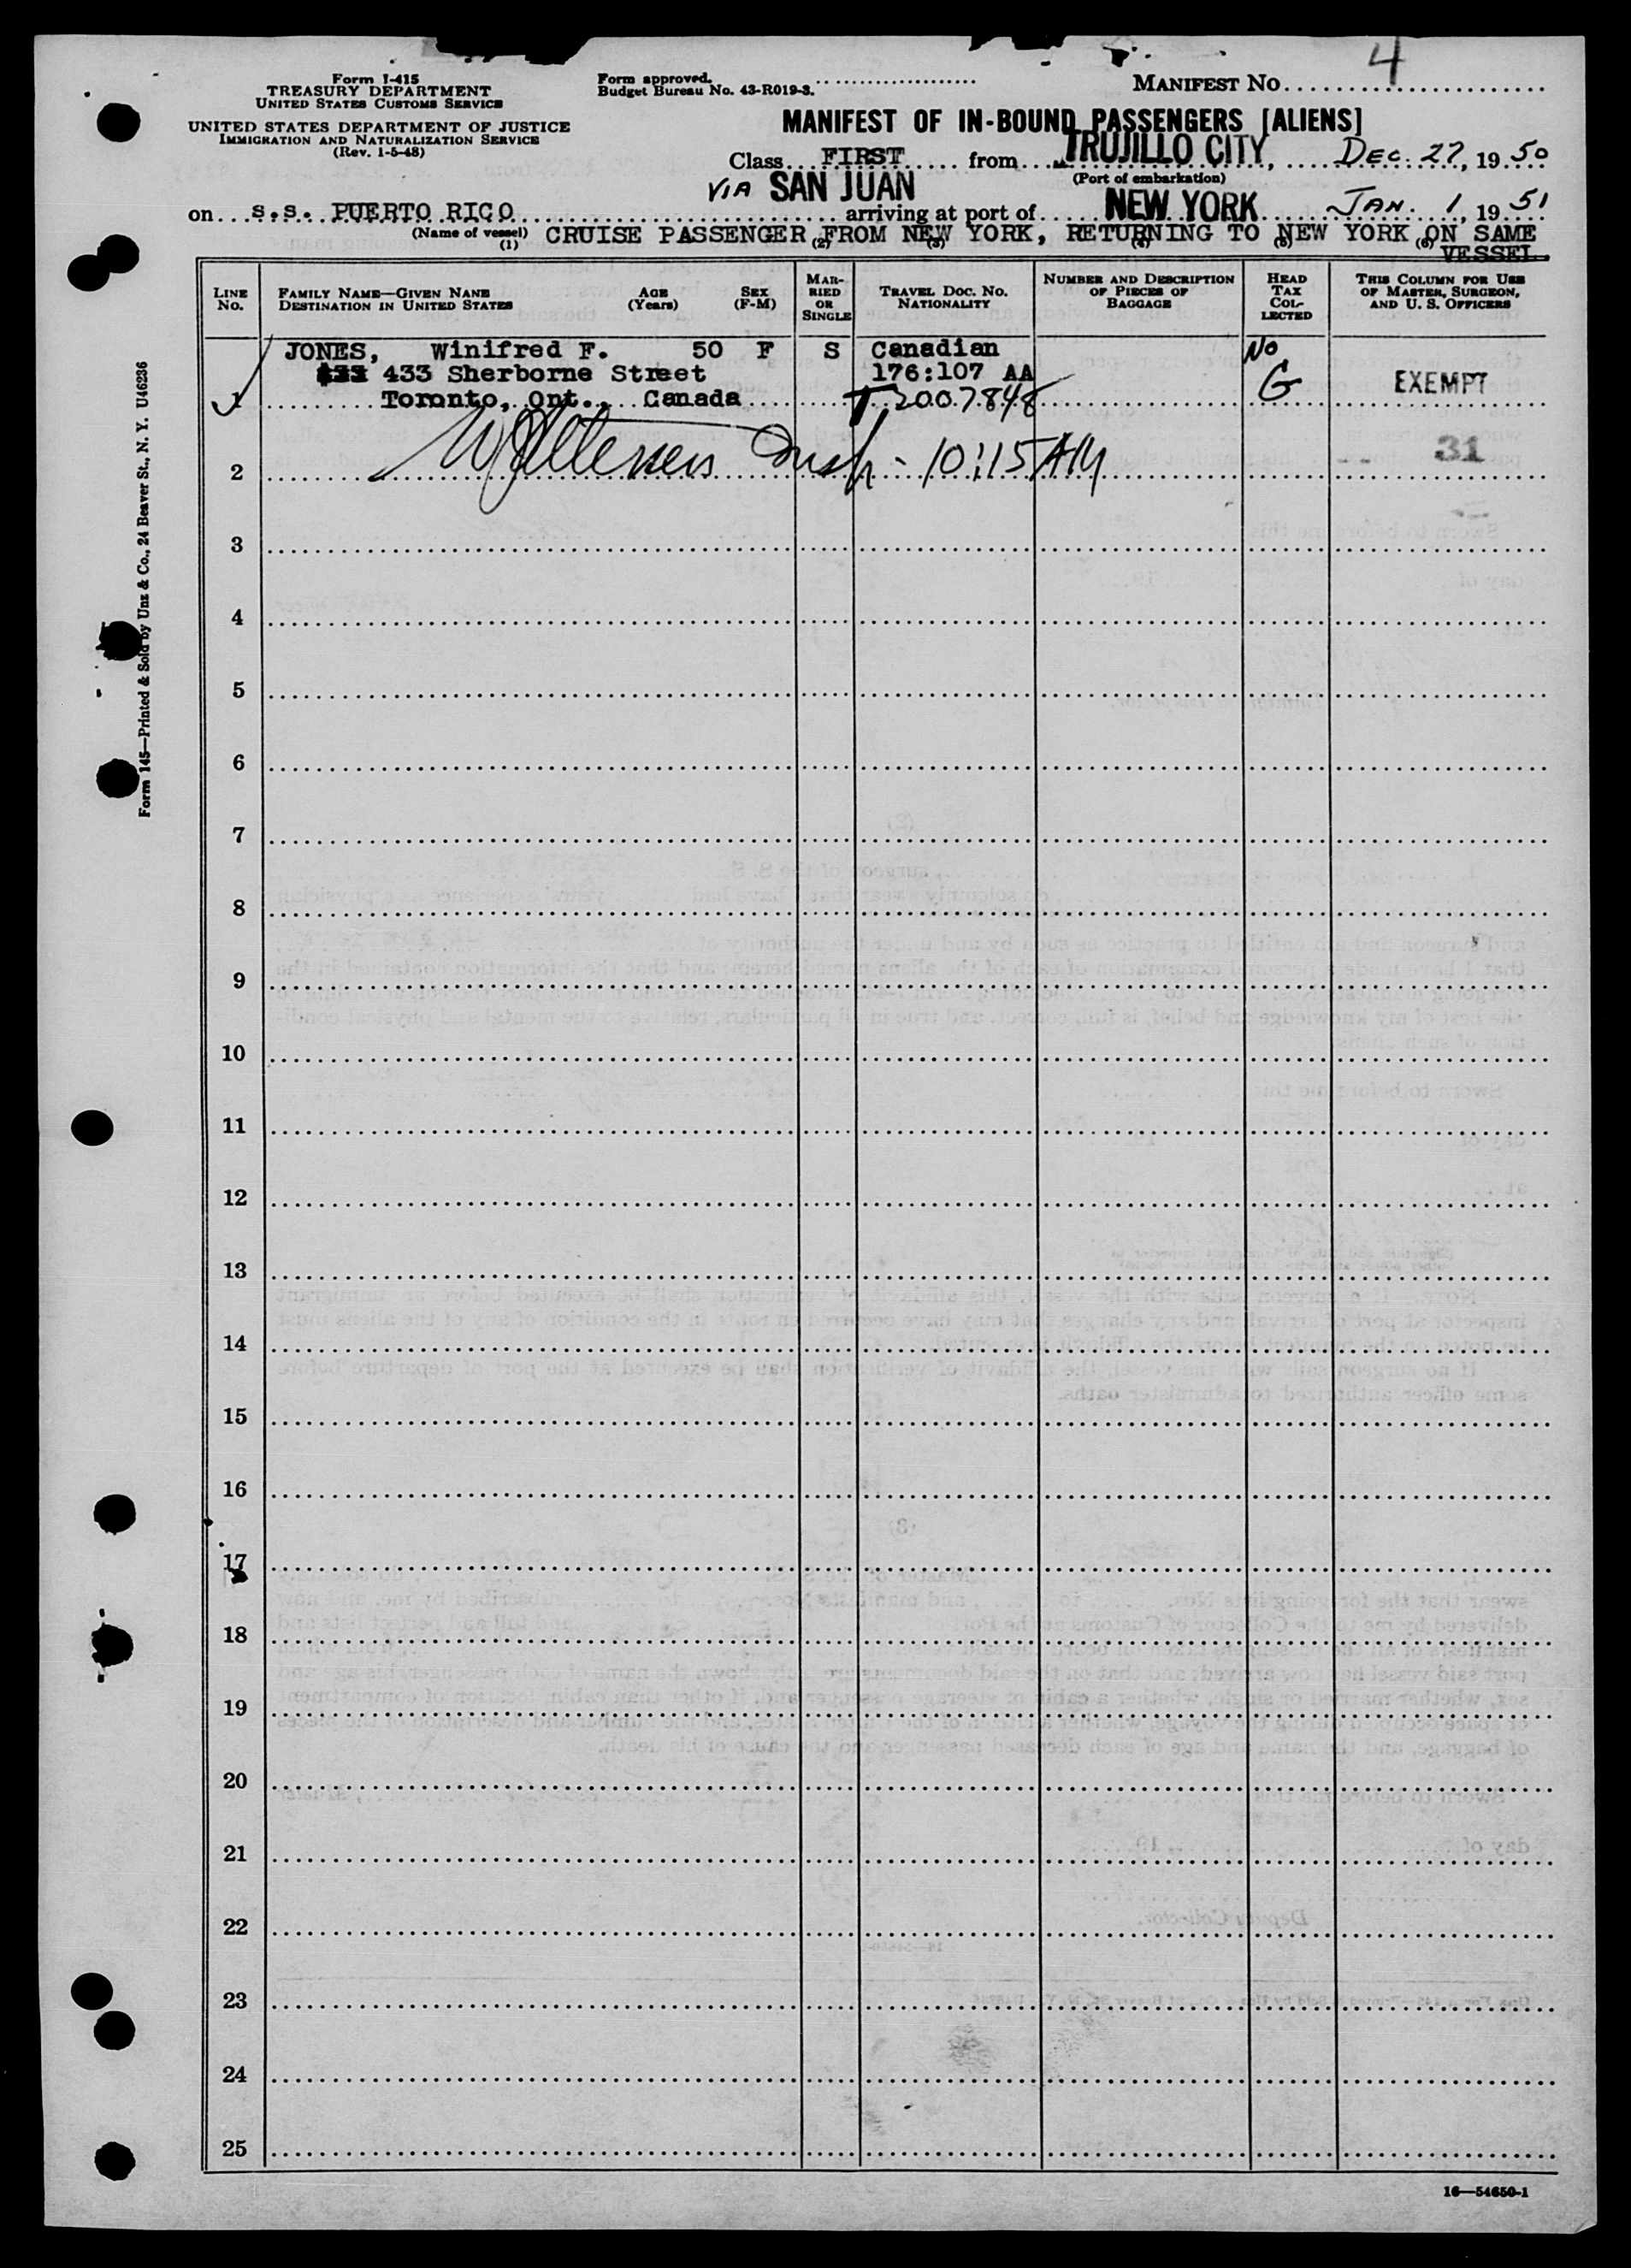 4
Form I-415
TREASURY DEPARTMENT
UNITED STATES CUSTOMS SERVICE
UNITED STATES DEPARTMENT OF JUSTICE
IMMIGRATION AND NATURALIZATION SERVICE
(Rev. 1-5-48)
Form approved.
Budget Bureau No. 43-R019-3.
MANIFEST NO.
MANIFEST OF IN-BOUND PASSENGERS [ALIENS]
Class FIRST from TRUJILLO CITY, DEC. 27, 1950
(Port of embarkation)
VIA SAN JUAN
on S.S. PUERTO RICO arriving at port of NEW YORK JAN. 1, 1951
(Name of vessel)
CRUISE PASSENGER FROM NEW YORK, RETURNING TO NEW YORK ON SAME
VESSEL.
(1) (2) (3) (4) (5) (6)
LINE NO.
FAMILY NAME—GIVEN NAME
DESTINATION IN UNITED STATES
AGE (Years)
SEX (F-M)
MARRIED OR SINGLE
TRAVEL DOC. NO.
NATIONALITY
NUMBER AND DESCRIPTION OF PIECES OF BAGGAGE
HEAD TAX COLLECTED
THIS COLUMN FOR USE OF MASTER, SURGEON, AND U. S. OFFICERS
JONES, Winifred F. 50 F S Canadian No
433 Sherborne Street 176:107 AA G EXEMPT
1 Toronto, Ont., Canada T 2007848
2 Insp - 10:15 AM 31
3
4
5
6
7
8
9
10
11
12
13
14
15
16
17
18
19
20
21
22
23
24
25
16—54650-1
Form 145—Printed & Sold by Unz & Co., 24 Beaver St., N. Y. U46236